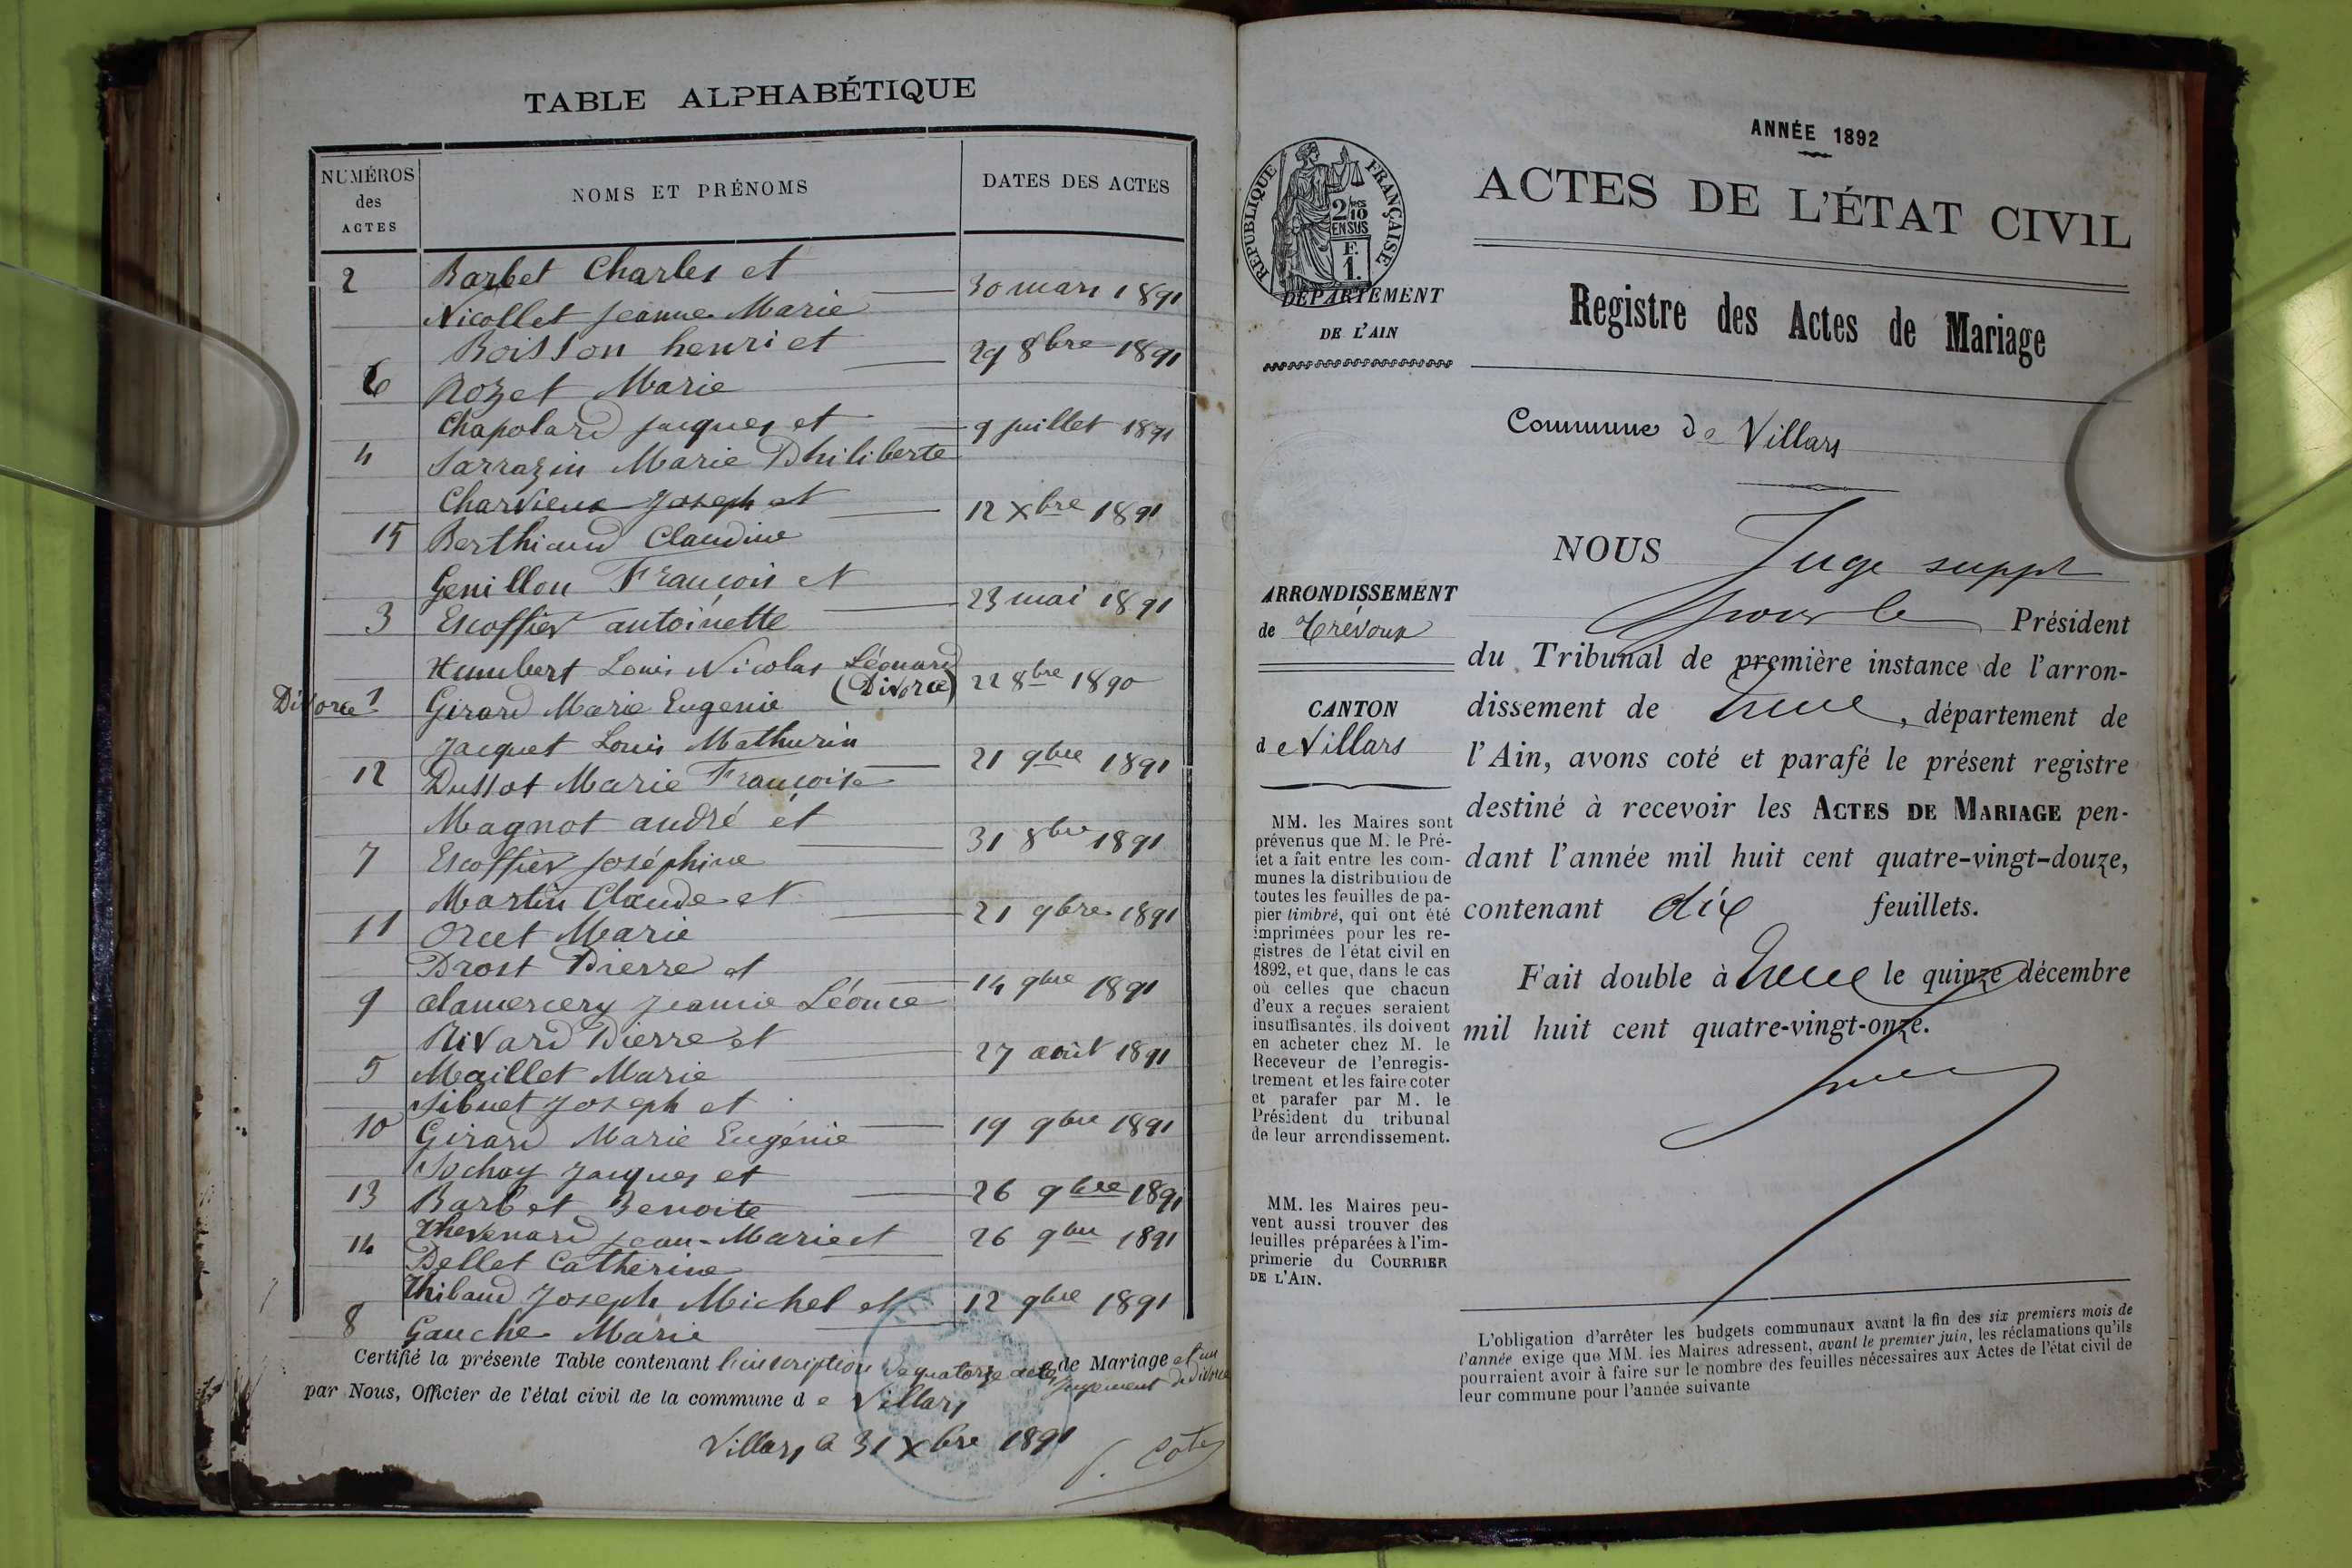 TABLE ALPHABÉTIQUE
NUMÉROS des ACTES
NOMS ET PRÉNOMS
DATES DES ACTES
2 Barbet Charles et
Nicollet Jeanne Marie 30 mars 1891
Boisson henri et 29 8bre 1891
6 Rozet Marie
Chapolard Jacques et 9 juillet 1891
4 Sarrazin Marie Philiberte
Charvieux Joseph et 12 Xbre 1891
15 Berthiaud Claudine
Genillon François et 23 mai 1891
3 Escoffier antoinette
Humbert Louis Nicolas Léonard
Divorce 1 Girard Marie Eugenie (Divorce) 22 8bre 1890
Jacquet Louis Mathurin 21 9bre 1891
12 Dussot Marie Françoise
Magnot andré et 31 8bre 1891
7 Escoffier Joséphine
Martin Claude et 21 9bre 1891
11 Orcet Marie
Prost Pierre et 14 9bre 1891
9 alamercery Jeanne Léonce
Rivard Pierre et 27 août 1891
5 Maillet Marie
Sibuet Joseph et 19 9bre 1891
10 Girard Marie Eugénie
Sochay Jacques et 26 9bre 1891
13 Barbet Benoite
14 Thevenard Jean-Marie et 26 9bre 1891
Pellet Catherine
Thibaud Joseph Michel et 12 9bre 1891
8 Gauche Marie
Certifié la présente Table contenant l'inscription de quatorze actes de Mariage et un jugement de divorce
par Nous, Officier de l'état civil de la commune de Villars
Villars le 31 Xbre 1891
ANNÉE 1892
ACTES DE L'ÉTAT CIVIL
RÉPUBLIQUE FRANÇAISE
2/10 EN SUS
F. 1.
DÉPARTEMENT
DE L'AIN
Registre des Actes de Mariage
Commune de Villars
NOUS Juge suppt
pour le Président
du Tribunal de première instance de l'arron-
dissement de , département de
l'Ain, avons coté et parafé le présent registre
destiné à recevoir les ACTES DE MARIAGE pen-
dant l'année mil huit cent quatre-vingt-douze,
contenant dix feuillets.
Fait double à le quinze décembre
mil huit cent quatre-vingt-onze.
ARRONDISSEMENT
de Trévoux
CANTON
de Villars
MM. les Maires sont
prévenus que M. le Pré-
fet a fait entre les com-
munes la distribution de
toutes les feuilles de pa-
pier timbré, qui ont été
imprimées pour les re-
gistres de l'état civil en
1892, et que, dans le cas
où celles que chacun
d'eux a reçues seraient
insuffisantes, ils doivent
en acheter chez M. le
Receveur de l'enregis-
trement et les faire coter
et parafer par M. le
Président du tribunal
de leur arrondissement.
MM. les Maires peu-
vent aussi trouver des
feuilles préparées à l'im-
primerie du COURRIER
DE L'AIN.
L'obligation d'arrêter les budgets communaux avant la fin des six premiers mois de
l'année exige que MM. les Maires adressent, avant le premier juin, les réclamations qu'ils
pourraient avoir à faire sur le nombre des feuilles nécessaires aux Actes de l'état civil de
leur commune pour l'année suivante